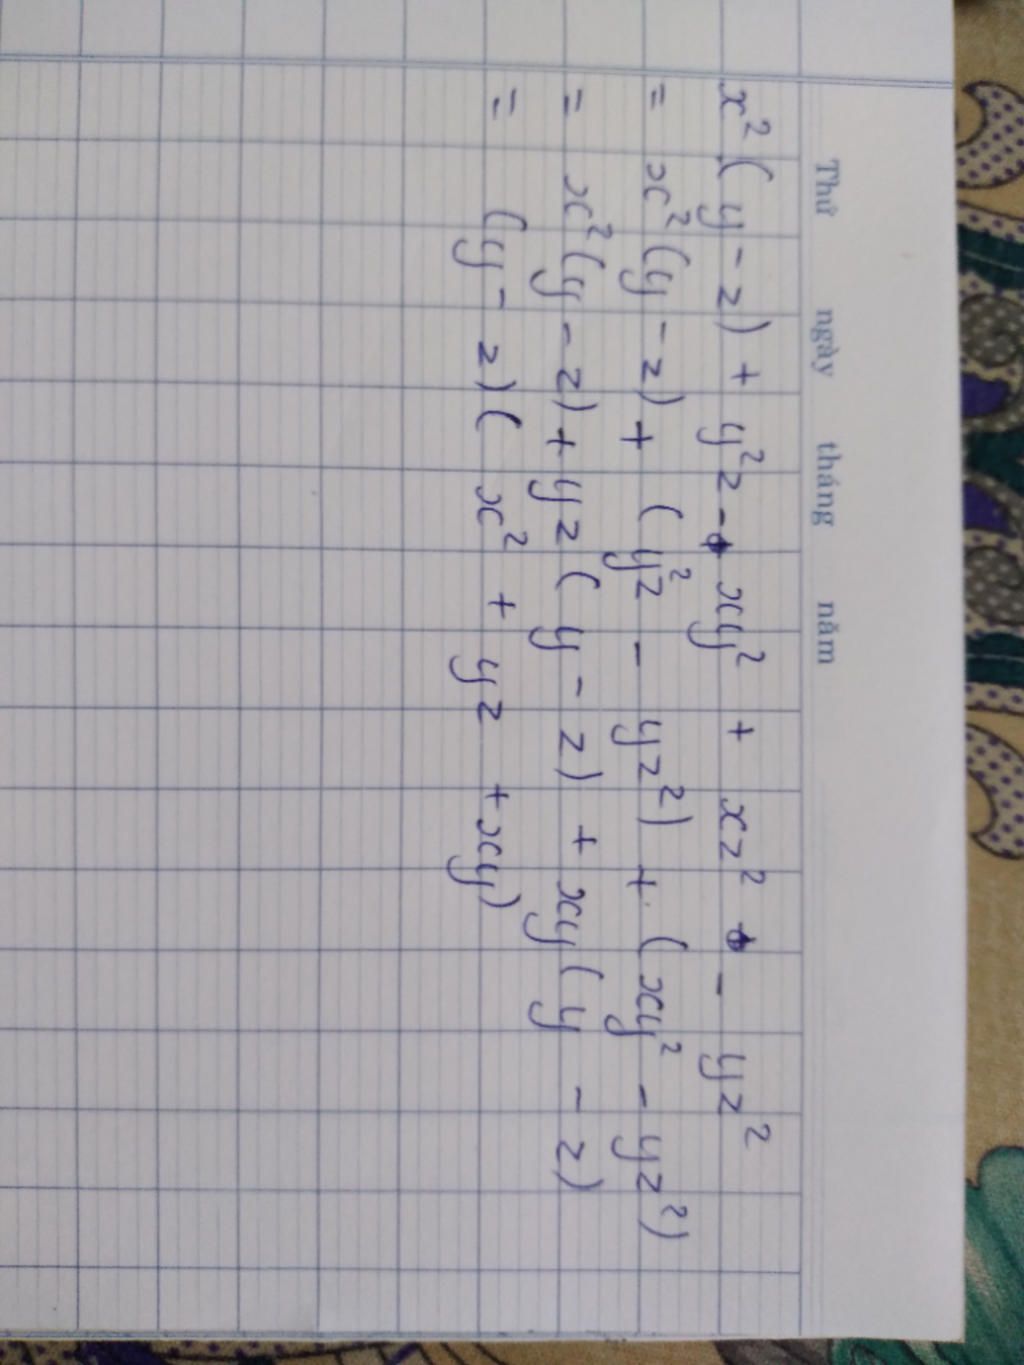 Thứ ngày tháng năm
x²(y - z) + y²z - xy² + xz² - yz²
= x²(y - z) + (y²z - yz²) + (xy² - yz²)
= x²(y - z) + yz(y - z) + xy(y - z)
= (y - z)(x² + yz + xy)